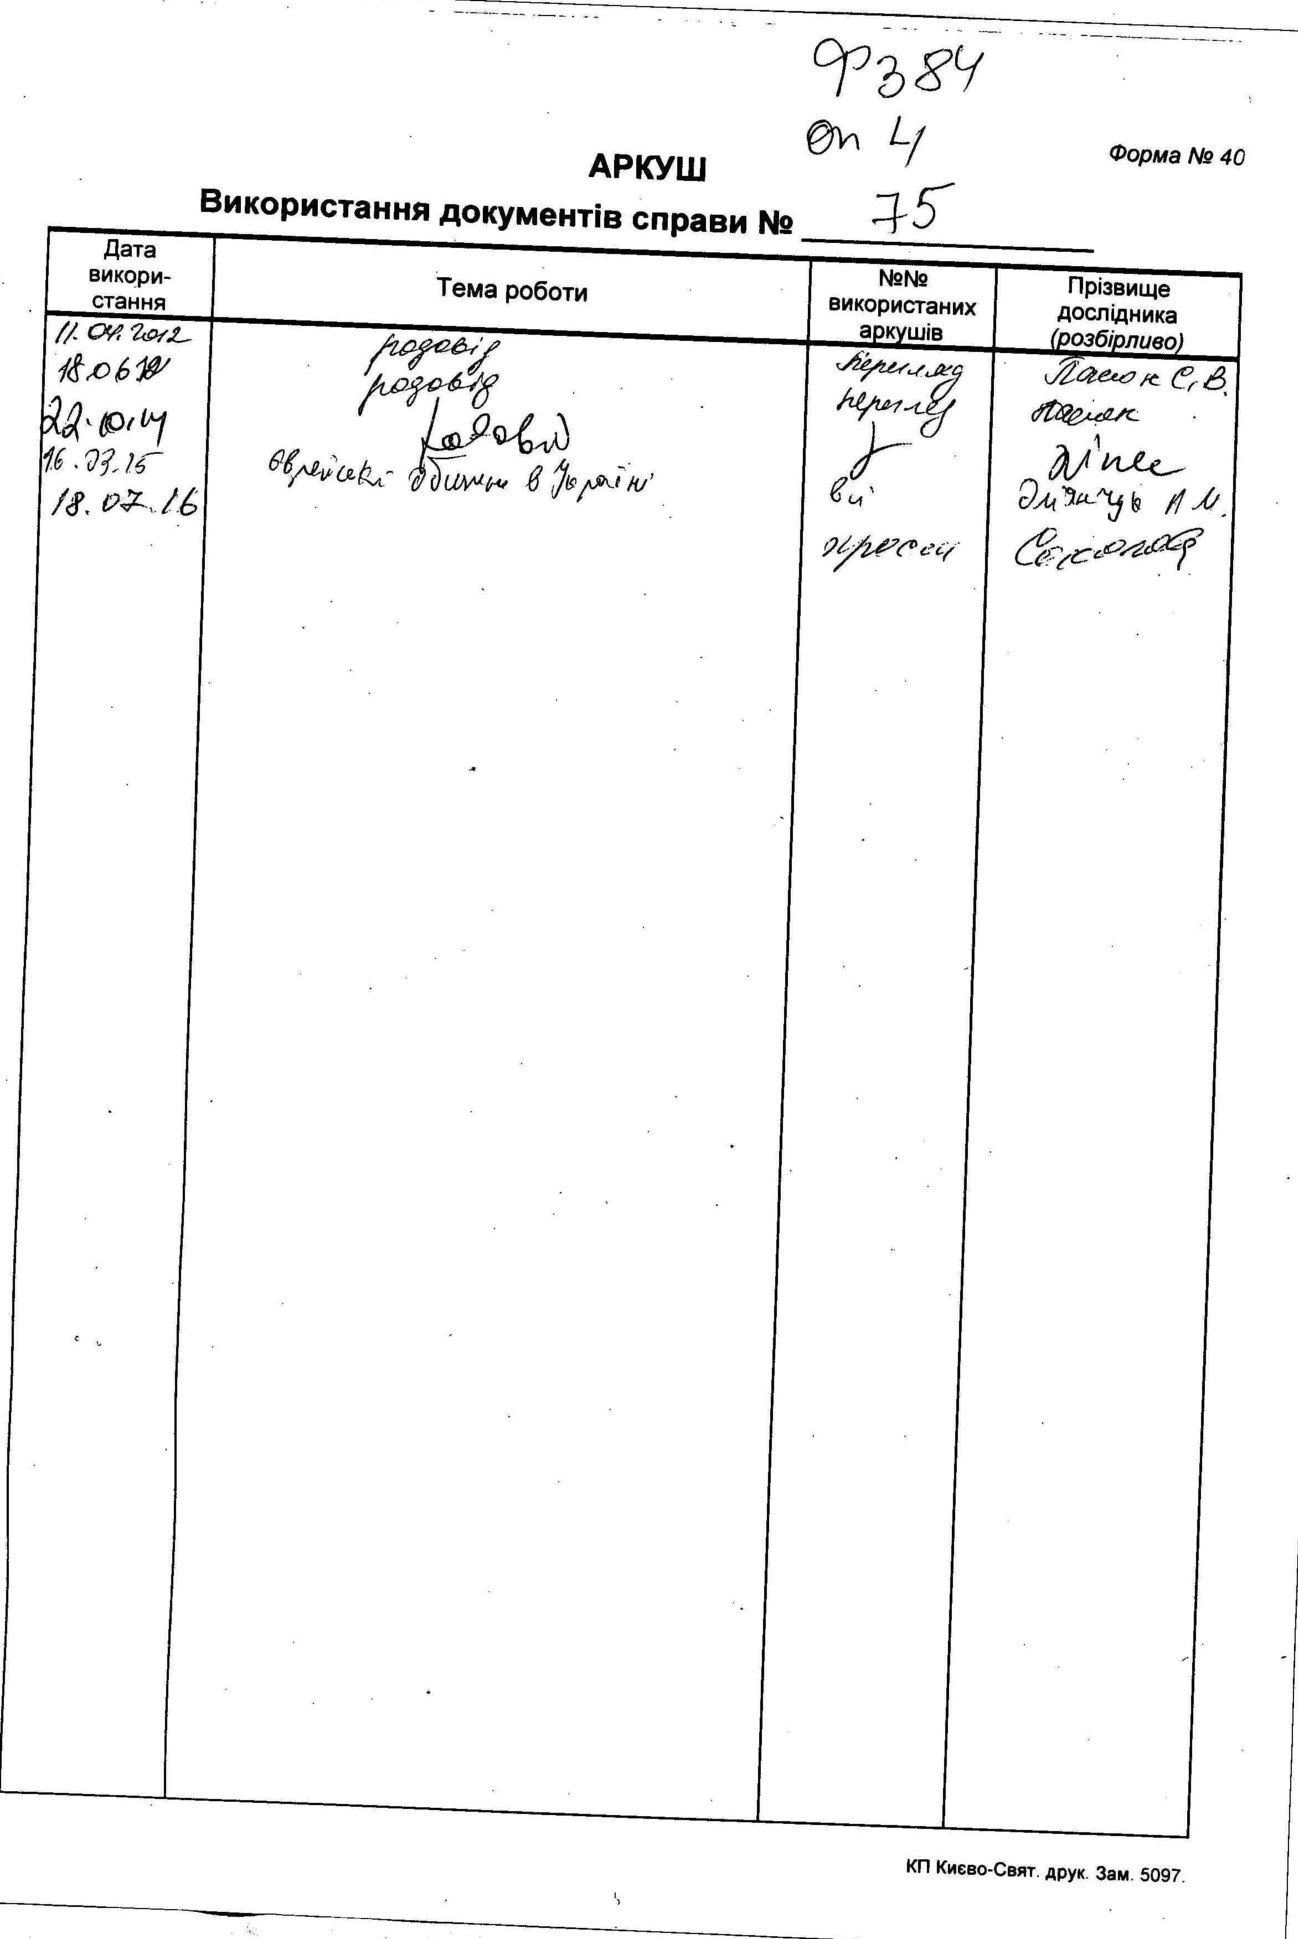 Ф 384
оп 4
Форма № 40
АРКУШ
Використання документів справи № 75
Дата
викори-
стання
Тема роботи
№№
використаних
аркушів
Прізвище
дослідника
(розбірливо)
11.04.2012 родовід перегляд С.В.
18.06.12 родовід перегляд
22.10.14 родовід
16.03.15 єврейські общини в Україні всі А.М.
18.07.16 просм Соколова
КП Києво-Свят. друк. Зам. 5097.